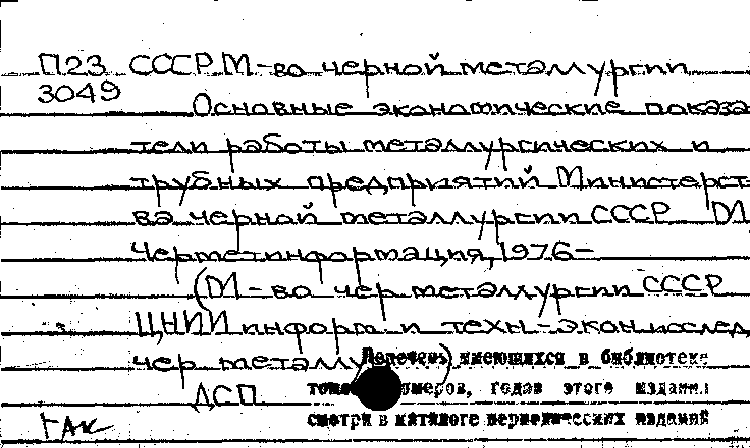 П23 СССР. М-во черной металлургии
3049
Основные экономические показа
тели работы металлургических и
трубных предприятий Министерст
ва черной металлургии СССР М
Черметинформация, 1976-
(М-во чер. металлургии СССР
ЦНИИ информ и техн.-экон. исслед
чер металлургии)
ДСП.
Перечень имеющихся в библиотеке
томов, номеров, годов этого издания
смотри в каталоге периодических изданий
ГАК